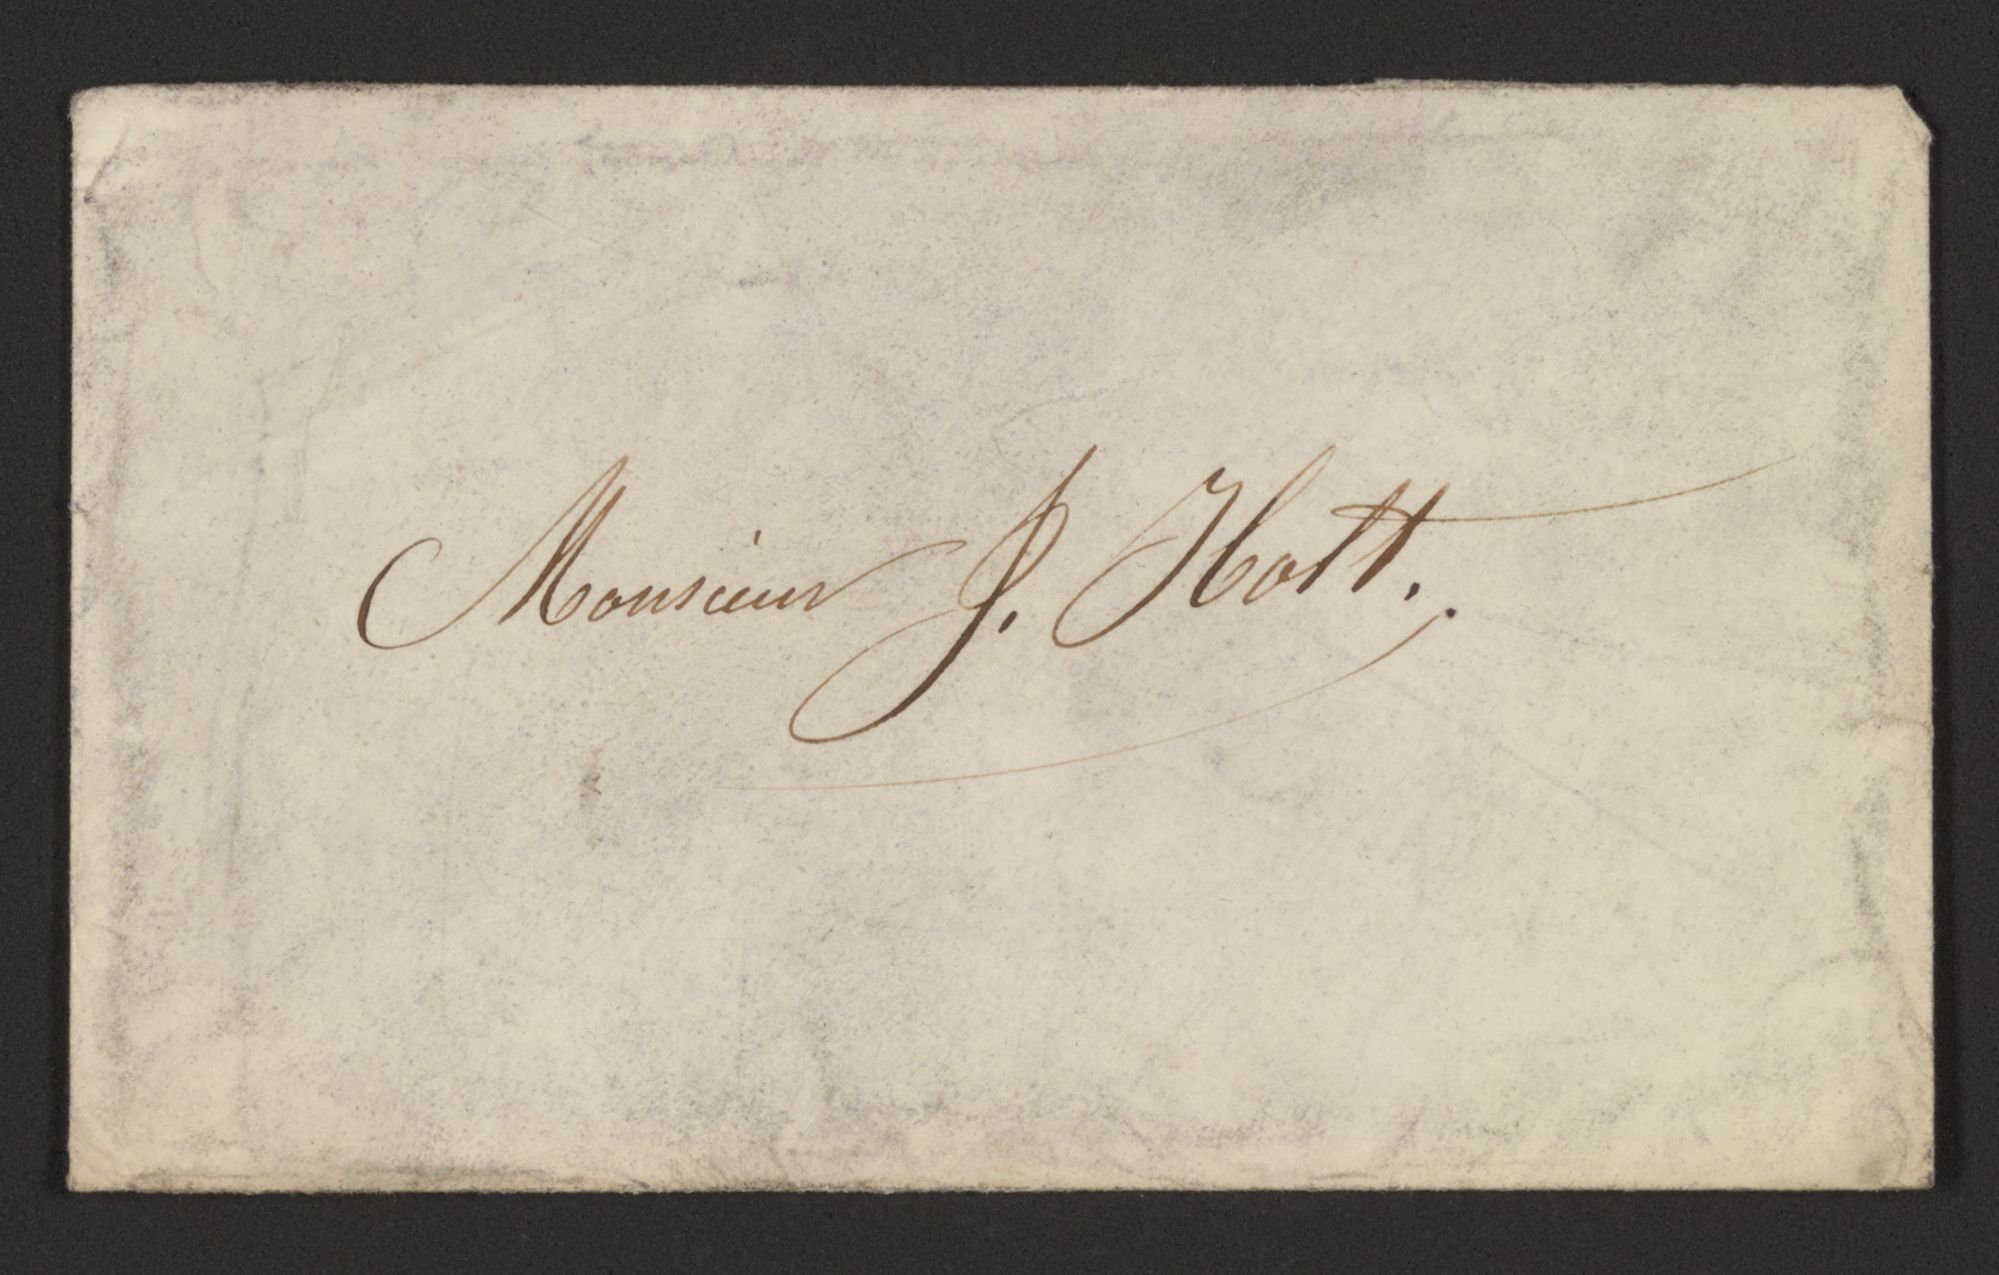 Monsieur J. Hott.